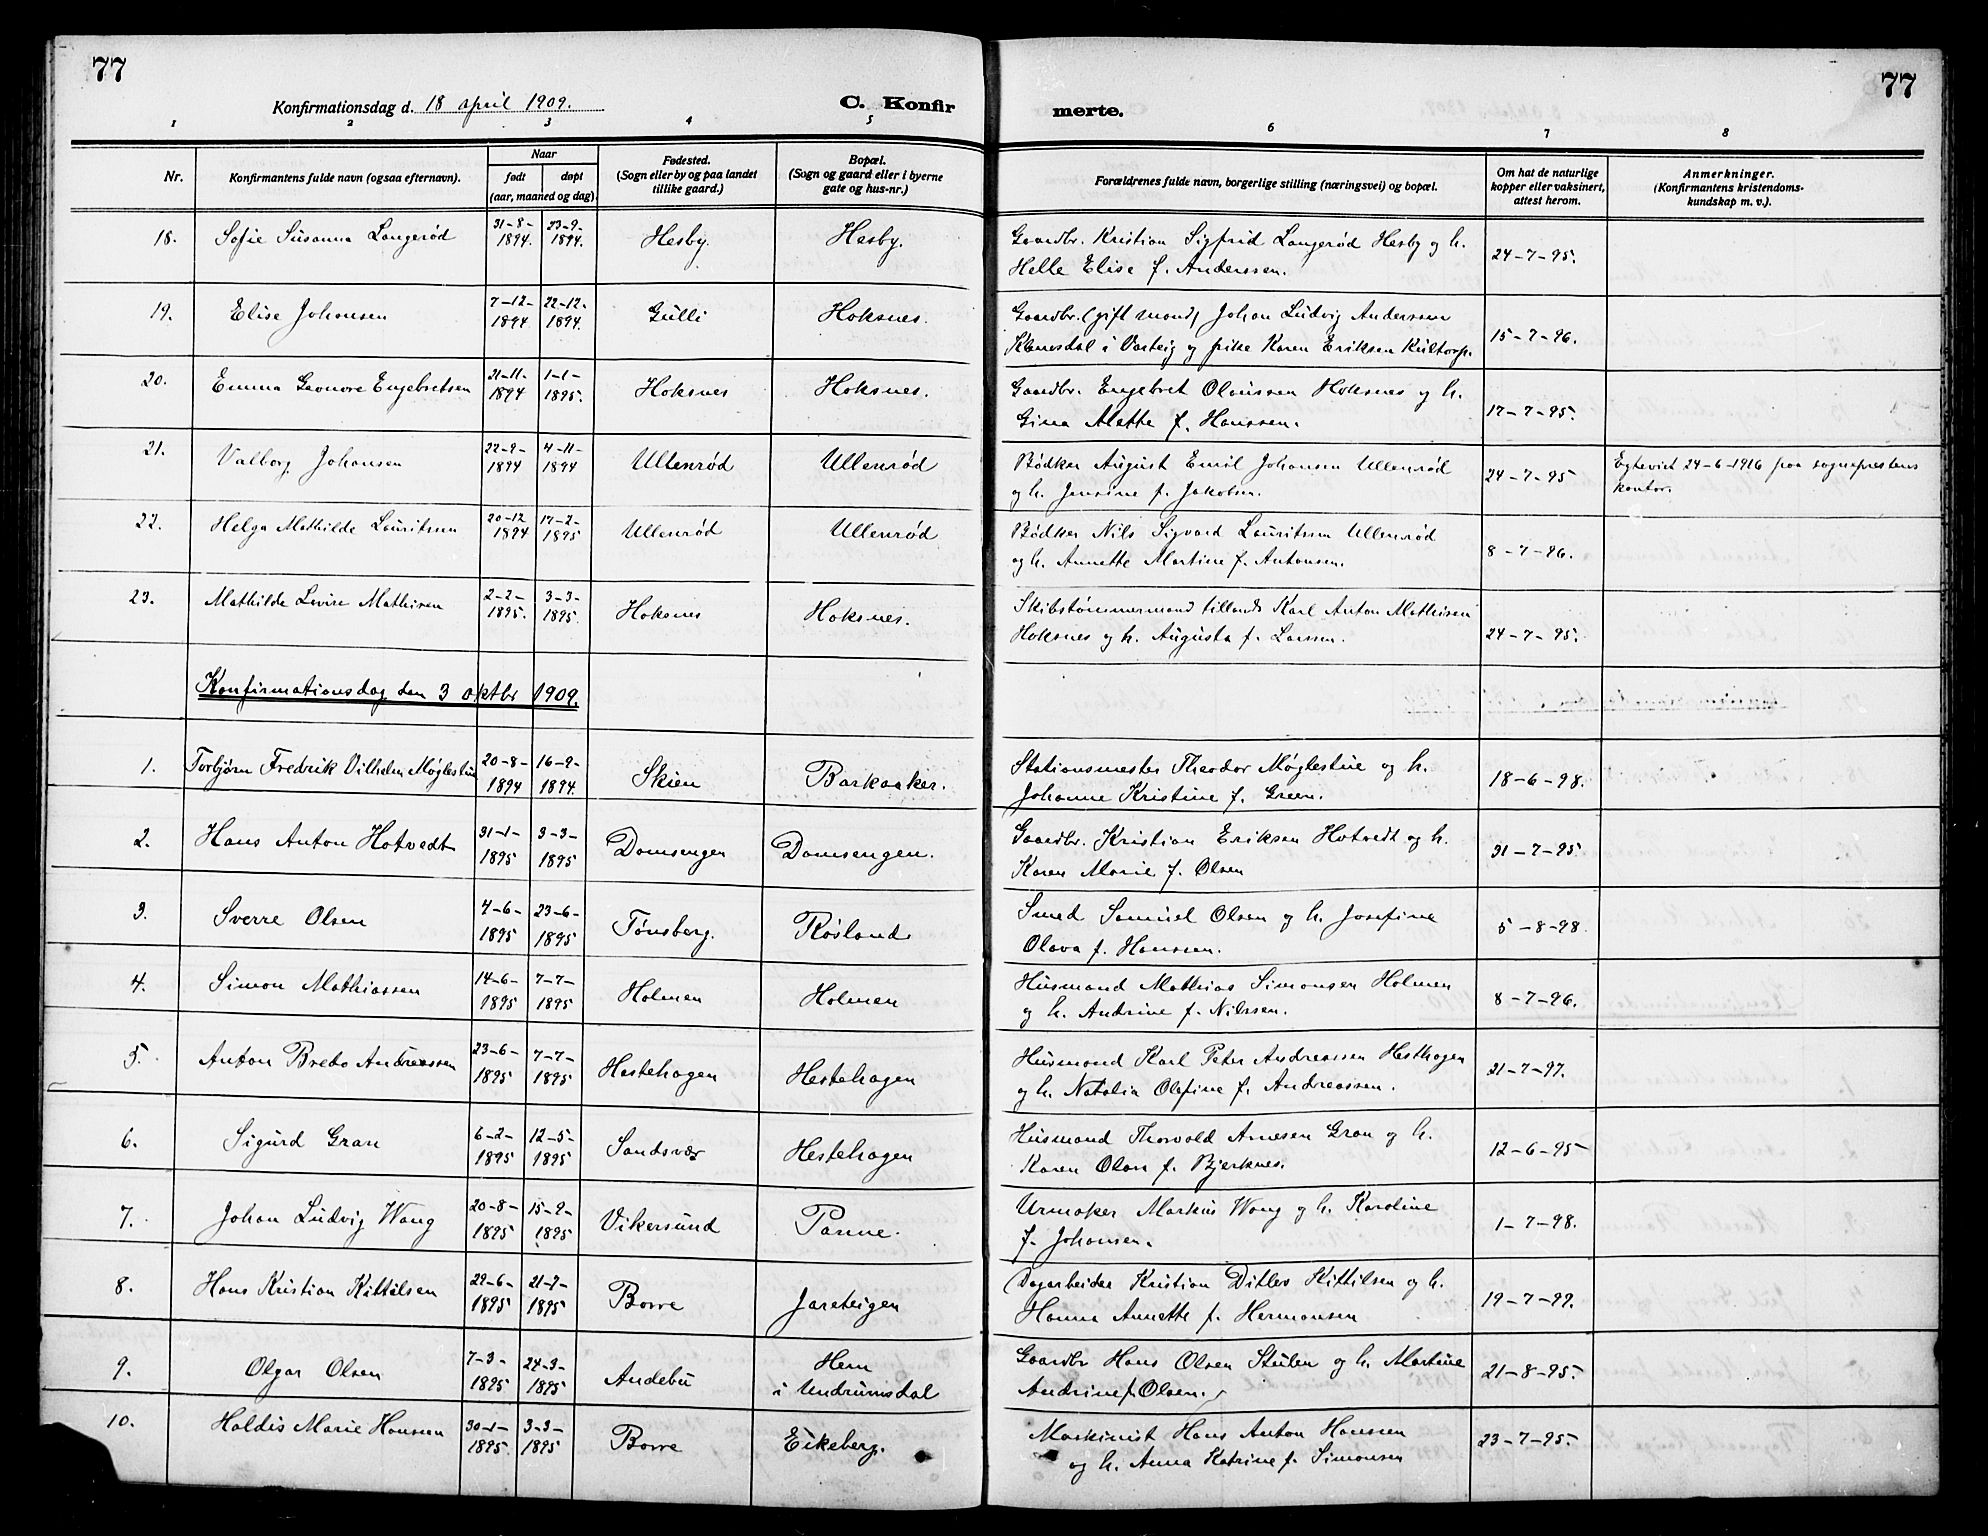 77
77
Konfirmationsdag d. 18 april 1909.
C. Konfir
merte.
1 2 3 4 5 6 7 8
Nr.
Konfirmantens fulde navn (ogsaa efternavn).
Naar
født døpt
(aar, maaned og dag).
Fødested.
(Sogn eller by og paa landet
tillike gaard.)
Bopæl.
(Sogn og gaard eller i byerne
gate og hus-nr.)
Forældrenes fulde navn, borgerlige stilling (næringsvei) og bopæl.
Om hat de naturlige
kopper eller vaksinert,
attest herom.
Anmerkninger.
(Konfirmantens kristendoms-
kundskap m. v.).
18. Sofie Susanna Langerød 31-8- 1894. 23-9- 1894. Hesby. Hesby. Gaardbr. Kristian Sigfrid Langerød Hesby og h.
Helle Elise f. Anderssen. 24-7-95.
19. Elise Johansen 7-12- 1894 22-12- 1894. Gulli Hoksnes. Gaardbr. (gift mand) Johan Ludvig Anderssen
i Varteig og pike Karen Eriksen 15-7-96.
20. Emma Leonore Engebretsen 21-11- 1894 1-1- 1895. Hoksnes Hoksnes. Gaardbr. Engebret Olaussen Hoksnes og h.
Gina Mathe f. Hanssen. 17-7-95.
21. Valborg Johansen 22-9- 1894 4-11- 1894 Ullenrød Ullenrød Bødker August Emil Johansen Ullenrød
og h. Jensine f. Jakobsen. 24-7-95 Egteviet 24-6-1916 paa sogneprestens
kontor.
22. Helga Mathilde Lauritssen 20-12 1894 17-2- 1895 Ullenrød Ullenrød Bødker Nils Sigvard Lauritssen Ullenrød
og h. Annette Martine f. Antonsen. 8-7-96.
23. Mathilde Lovise Mathisen 2-2- 1895. 3-3- 1895. Hoksnes Hoksnes. Skibstømmermand tillands Karl Anton Mathissen
Hoksnes og h. Augusta f. Larssen. 24-7-95.
Konfirmationsdag den 3 oktbr 1909.
1. Torbjørn Fredrik Vilhelm Møglestue 20-8- 1894 16-9- 1894. Skien Barkaaker. Stationsmester Theodor Møglestue og h.
Johanne Kristine f. Green. 18-6-98.
2. Hans Anton Hotvedt 31-1- 1895 3-3- 1895 Domsengen Domsengen. Gaardbr. Kristian Eriksen Hotvedt og h.
Karen Marie f. Olsen 31-7-95.
3. Sverre Olsen 4-6- 1895 23-6- 1895 Tønsberg. Røsland. Smed Samuel Olsen og h. Josefine
Olava f. Hanssen. 5-8-98.
4. Simon Mathiassen 14-6- 1895 7-7- 1895 Holmen Holmen Husmand Mathias Simonsen Holmen
og h. Andrine f. Nilssen. 8-7-96.
5. Anton Bredo Andreassen 23-6- 1895 7-7- 1895 Hestehagen Hestehagen Husmand Karl Peter Andreassen Hesthagen
og h. Natalia Olefine f. Andreassen. 21-7-97.
6. Sigurd Gran 6-2- 1895 12-5- 1895 Sandsvær Hestehagen Husmand Thorvald Arnesen Gran og h.
Karen Olava f. Bjerknes. 12-6-95
7. Johan Ludvig Wang 20-8- 1895 15-9- 1895 Vikersund Panne. Urmaker Markus Wang og h. Karoline
f. Johansen. 1-7-98.
8. Hans Kristian Kittilsen 22-6- 1895 21-7- 1895 Borre Jareteigen Dagarbeider Kristian Ditlev Kittilsen og h.
Hanna Annette f. Hermansen 19-7-99.
9. Olgar Olsen 7-3- 1895 24-3- 1895 Andebu Hem
i Undrumsdal Gaardbr Hans Olsen Stulen og h. Martine
Andrine f. Olsen. 21-8-95.
10. Haldis Marie Hanssen 30-1- 1895. 3-3- 1895 Borre Eikeberg. Maskinist Hans Anton Hanssen
og h. Anna Katrine f. Simonsen 23-7-95.